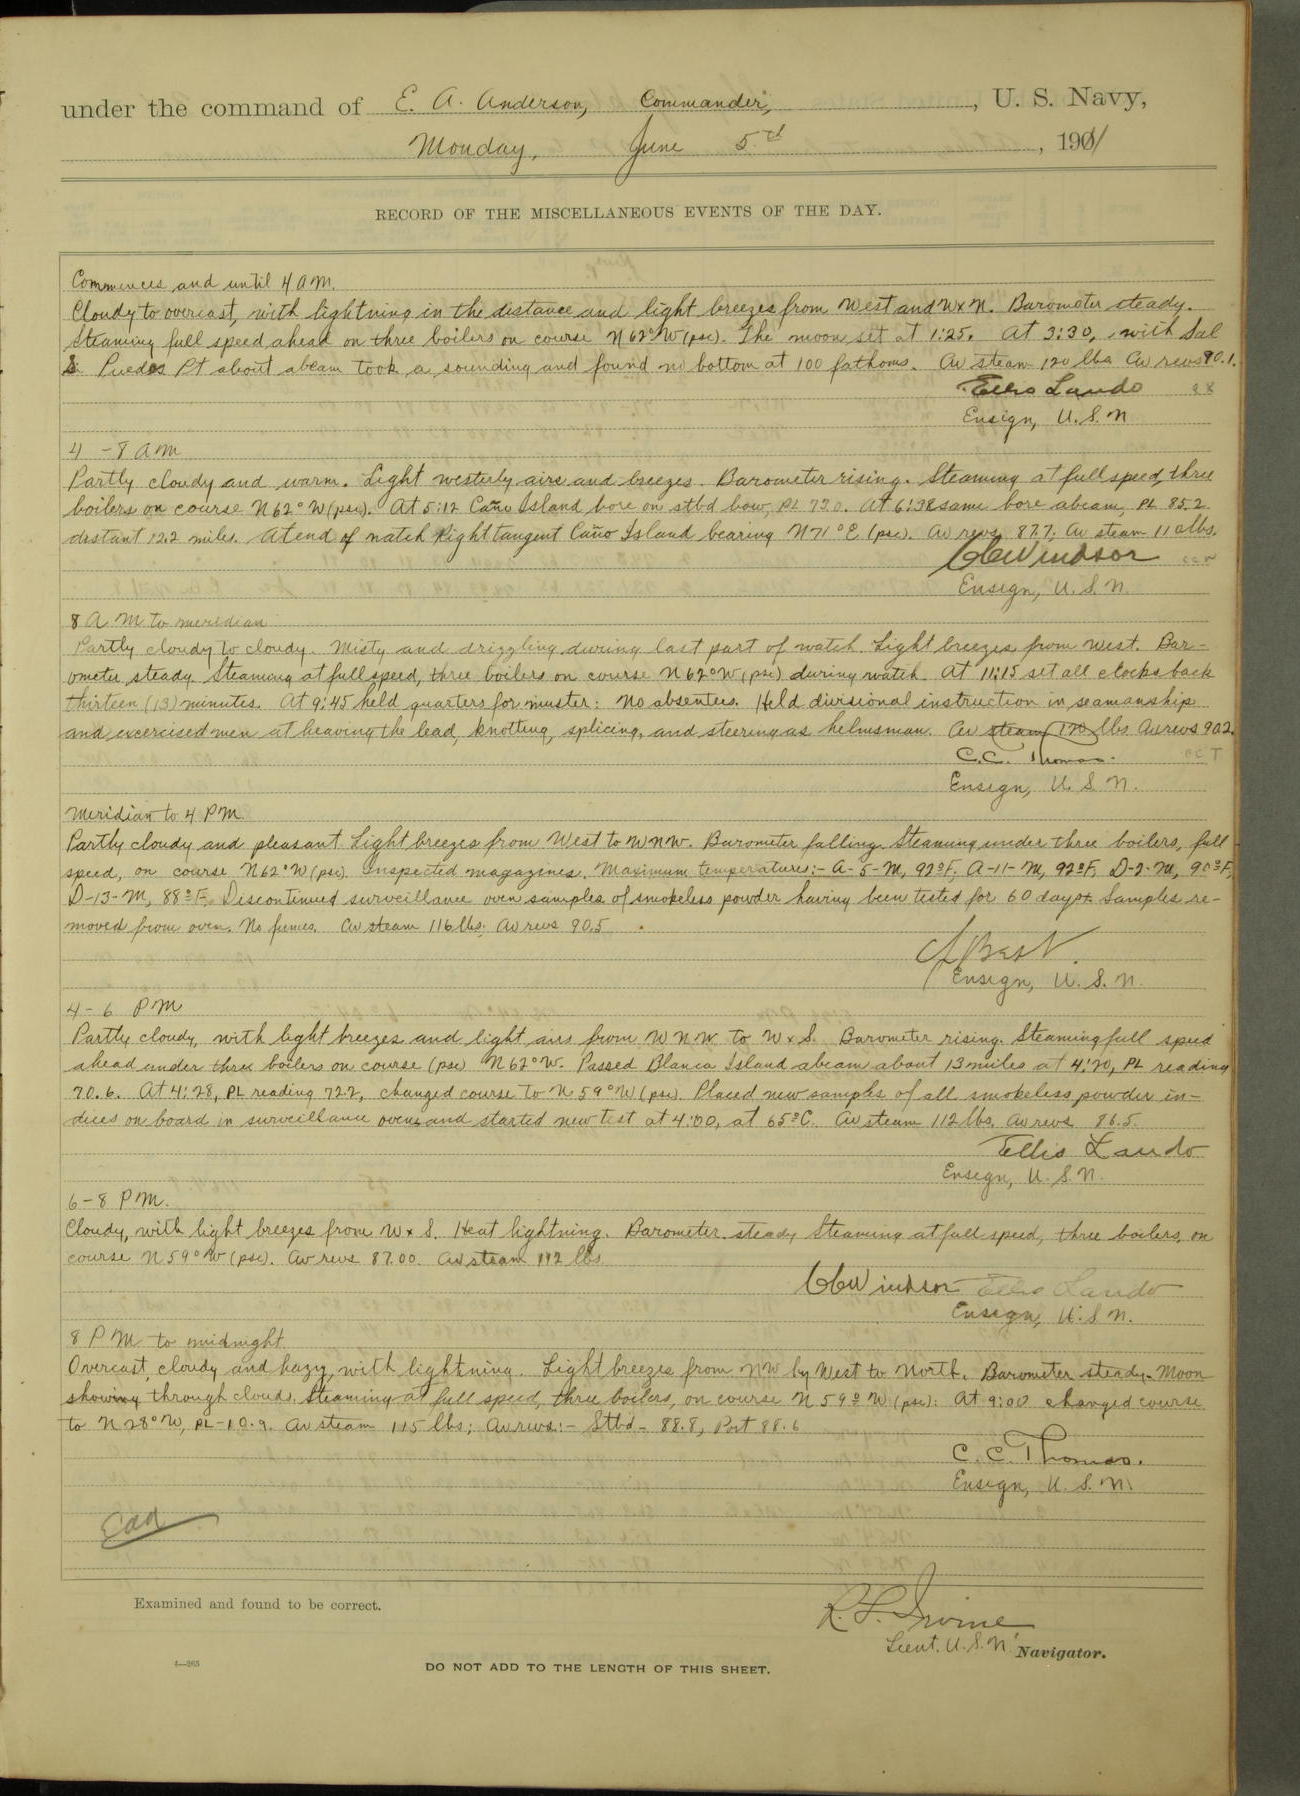 under the command of E. A. Anderson, Commander, , U. S. Navy,
Monday, June 5th , 1911
RECORD OF THE MISCELLANEOUS EVENTS OF THE DAY.
Commences and until 4 AM.
Cloudy to overcast, with lightning in the distance and light breezes from West and WxN. Barometer steady.
Steaming full speed ahead on three boilers on course N62°W (psc). The moon set at 1:25. At 3:30, with Sal
Si Puedes Pt about abeam took a sounding and found no bottom at 100 fathoms. Av steam 120 lbs Av revs 90.1.
Ellis Lando
Ensign, U. S. N
4 - 8 AM
Partly cloudy and warm. Light westerly airs and breezes. Barometer rising. Steaming at full speed, three
boilers on course N62°W (psc). At 5:12 Caño Island bore on stbd bow, PL 73.0. At 6:38 same bore abeam, PL 85.2
distant 12.2 miles. At end of watch right tangent Caño Island bearing N71°E (psc). Av revs 87.7; Av steam 110 lbs.
CC Windsor
Ensign, U. S. N.
8 A M to meridian
Partly cloudy to cloudy. Misty and drizzling during last part of watch. Light breezes from West. Bar-
ometer steady. Steaming at full speed, three boilers on course N62°W (psc) during watch. At 11:15 set all clocks back
thirteen (13) minutes. At 9:45 held quarters for muster: No absentees. Held divisional instruction in seamanship
and excercised men at heaving the lead, knotting, splicing, and steering as helmsman. Av steam 120 lbs. Av revs 90.2.
C.C. Thomas. CCT
Ensign, U. S. N.
Meridian to 4 PM.
Partly cloudy and pleasant. Light breezes from West to WNW. Barometer falling. Steaming under three boilers, full
speed, on course N62°W (psc). Inspected magazines. Maximum temperatures:- A-5-M, 92°F, A-11-M, 92°F, D-2-M, 90°F,
D-13-M, 88°F. Discontinued surveillance oven samples of smokeless powder having been tested for 60 days. Samples re-
moved from oven. No fumes. Av steam 116 lbs; Av revs 90.5
Best.
Ensign, U. S. N.
4 - 6 PM
Partly cloudy, with light breezes and light airs from WNW to WxS. Barometer rising. Steaming full speed
ahead under three boilers on course (psc) N62°W. Passed Blanca Island abeam about 13 miles at 4:20, PL reading
70.6. At 4:28, PL reading 72.2, changed course to N59°W (psc). Placed new samples of all smokeless powder in-
dices on board in surveillance ovens and started new test at 4:00, at 65°C. Av steam 112 lbs. Av revs 86.5.
Ellis Lando
Ensign, U. S. N.
6-8 PM.
Cloudy, with light breezes from WxS. Heat lightning. Barometer steady Steaming at full speed, three boilers, on
course N59°W (psc). Av revs 87.00. Av steam 112 lbs
CC Windsor Ellis Lando
Ensign, U. S. N.
8 PM to midnight
Overcast, cloudy and hazy, with lightning. Light breezes from NW by West to North. Barometer steady. Moon
showing through clouds. Steaming at full speed, three boilers, on course N59°W (psc). At 9:00 changed course
to N28°W, PL-10.9. Av steam 115 lbs; Av revs:- Stbd - 88.8, Port 88.6
C. C. Thomas.
Ensign, U. S. N.
Examined and found to be correct.
R. L. Irvine
Lieut. U. S. N. Navigator.
4—265
DO NOT ADD TO THE LENGTH OF THIS SHEET.